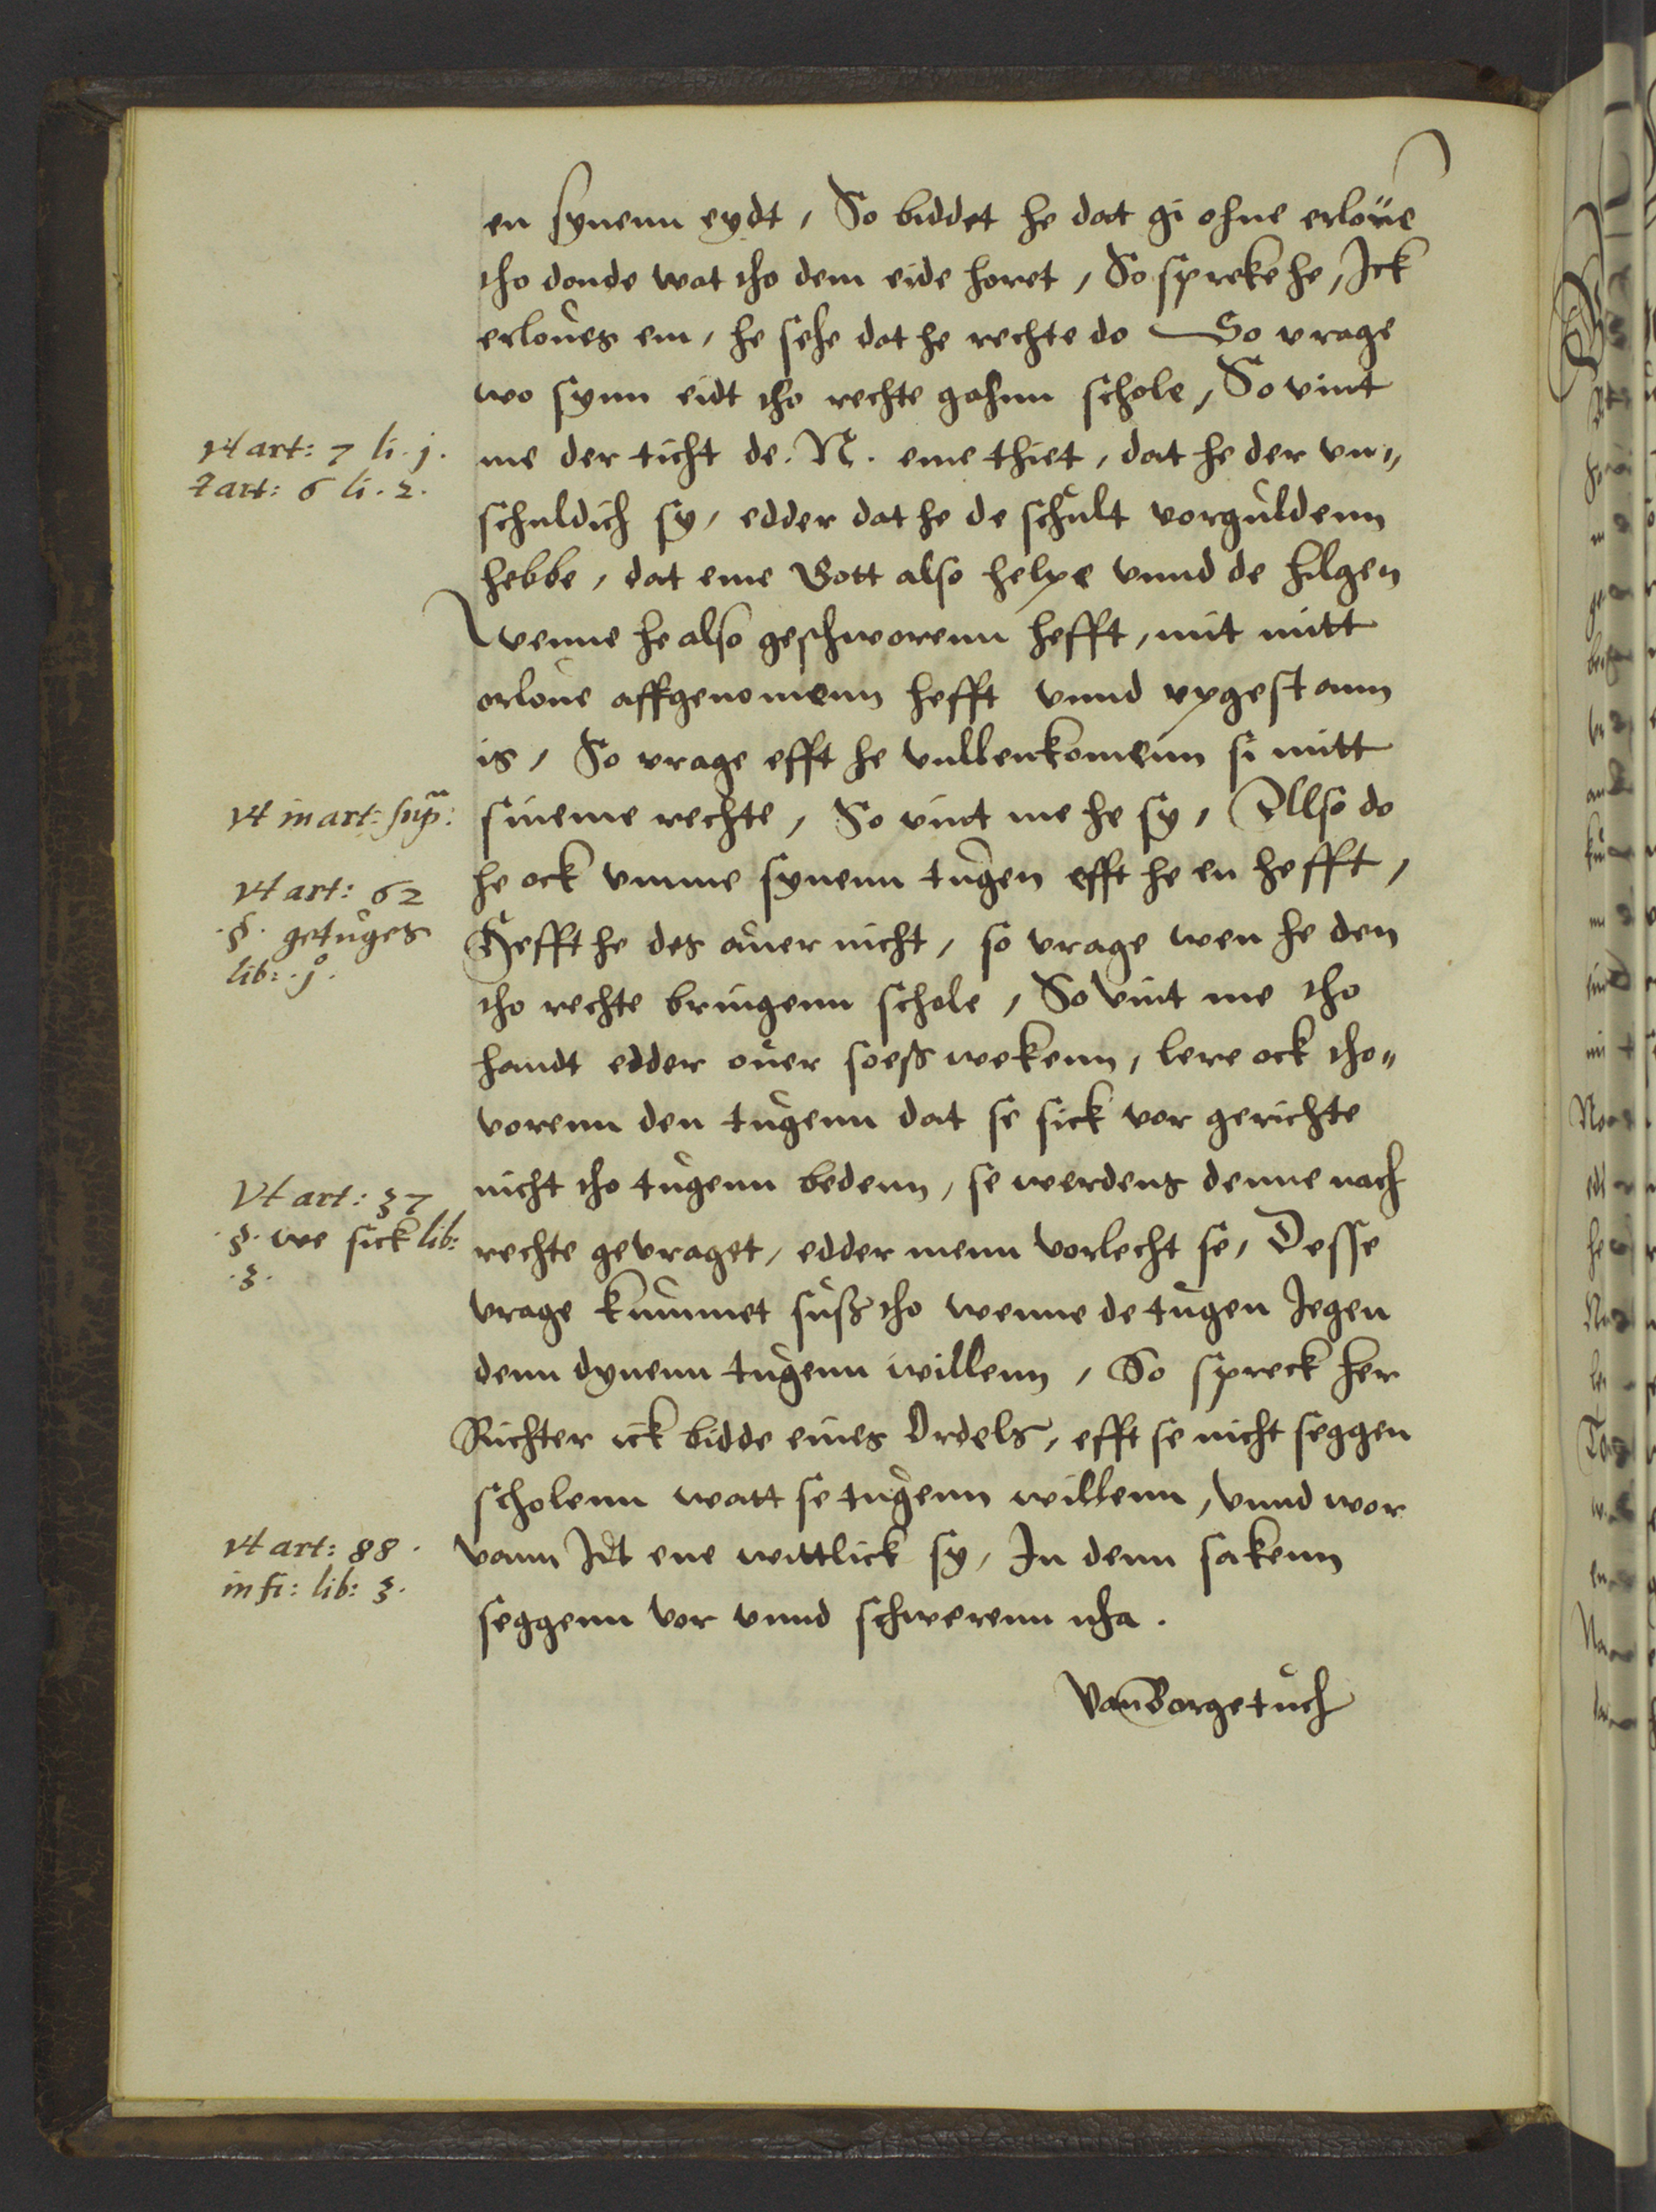 en synenn eydt, So biddet he dat gi ohne erlöue
tho donde wat tho dem eide horet, So spreke he, Ick
erlouês em, he sehe dat he rechte do So vrage
wo synn eidt tho rechte gahnn schole, So vint
vt art: 7 li. j.
me der ticht de. N. eme thiet, dat he der vn„
& art: 6 li. 2.
schuldich sy, edder dat he de schult vorguldenn
hebbe, dat eme Gott also helpe vnnd de hilgen
Wenne he also geschworenn hefft, mit mitt
orloue affgenomenn hefft vnnd vpgestann
is, So vrage efft he vullenkomenn si mitt
vt in art: sup:
sineme rechte, So vint me he sy, Allso do
vt art: 62
he ock vmme synenn tugen efft he en hefft,
.§. getuges
Hefft he des auer nicht, so vrage wen he den
lib: .j°.
tho rechte bringenn schole, So vint me tho
handt edder ouer soeß wekenn, lere ock tho„
vorenn den tugenn dat se sick vor gerichte
Vt art: 37
nicht tho tugenn bedenn, se werdens denne nach
.§. we sick lib:
rechte gevraget, edder menn vorlecht se, Desse
.3.
vrage kummet suß tho wenne de tugen Jegen
denn dynenn tugenn willenn, So spreck her
Richter ick bidde eines Ordels, efft se nicht seggen
scholenn watt se tugenn willenn, vnnd wor
vt art: 88.
vann Idt ene wittlick sy, In denn sakenn
in fi: lib: 3.
seggenn vor vnnd schwerenn nha.
Van Borgetuch